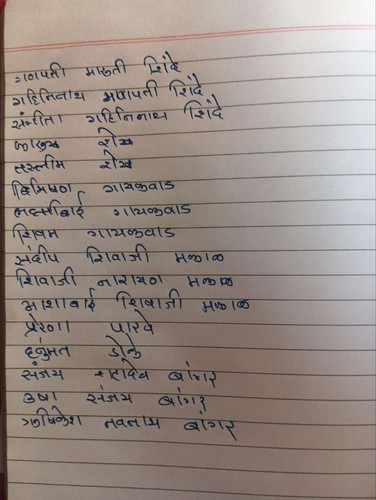 गणपती मारुती शिंदे
गहिनिनाथ गणपती शिंदे
संगीता गहिनिनाथ शिंदे
शेख
तस्लीम शेख
बिभिषण गायकवाड
लक्ष्मीबाई गायकवाड
शिवम गायकवाड
संदीप शिवाजी मळाळे
शिवाजी नारायण मळाळे
आशाबाई शिवाजी मळाळे
प्रेरणा पारवे
हनुमंत ढोले
संजय बांगर
उषा संजय बांगर
ऋषिकेश नवनाथ बांगर